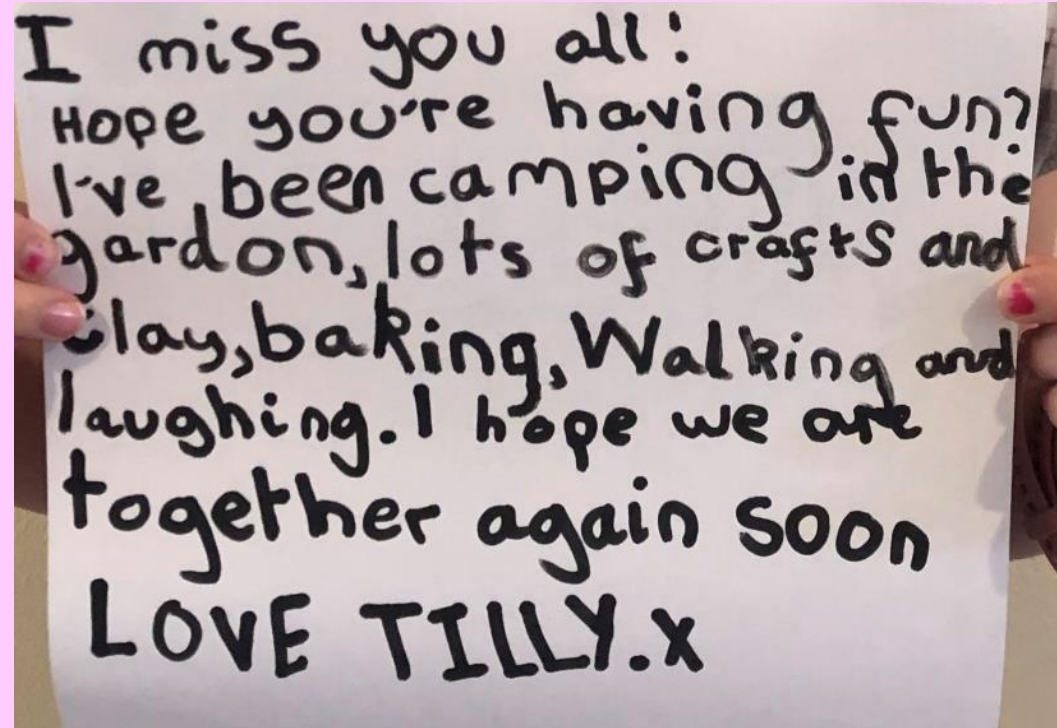 I miss you all!
Hope you're having fun?
I've been camping in the
gardon, lots of crafts and
clay, baking, Walking and
laughing. I hope we are
together again soon
LOVE TILLY.x